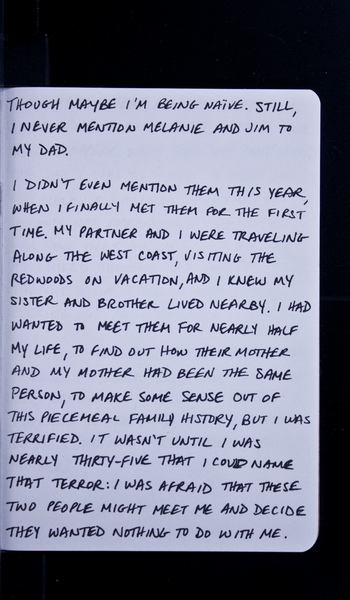 THOUGH MAYBE I'M BEING NAÏVE. STILL,
I NEVER MENTION MELANIE AND JIM TO
MY DAD.
I DIDN'T EVEN MENTION THEM THIS YEAR,
WHEN I FINALLY MET THEM FOR THE FIRST
TIME. MY PARTNER AND I WERE TRAVELING
ALONG THE WEST COAST, VISITING THE
REDWOODS ON VACATION, AND I KNEW MY
SISTER AND BROTHER LIVED NEARBY. I HAD
WANTED TO MEET THEM FOR NEARLY HALF
MY LIFE, TO FIND OUT HOW THEIR MOTHER
AND MY MOTHER HAD BEEN THE SAME
PERSON, TO MAKE SOME SENSE OUT OF
THIS PIECEMEAL FAMILY HISTORY, BUT I WAS
TERRIFIED. IT WASN'T UNTIL I WAS
NEARLY THIRTY-FIVE THAT I COULD NAME
THAT TERROR: I WAS AFRAID THAT THESE
TWO PEOPLE MIGHT MEET ME AND DECIDE
THEY WANTED NOTHING TO DO WITH ME.